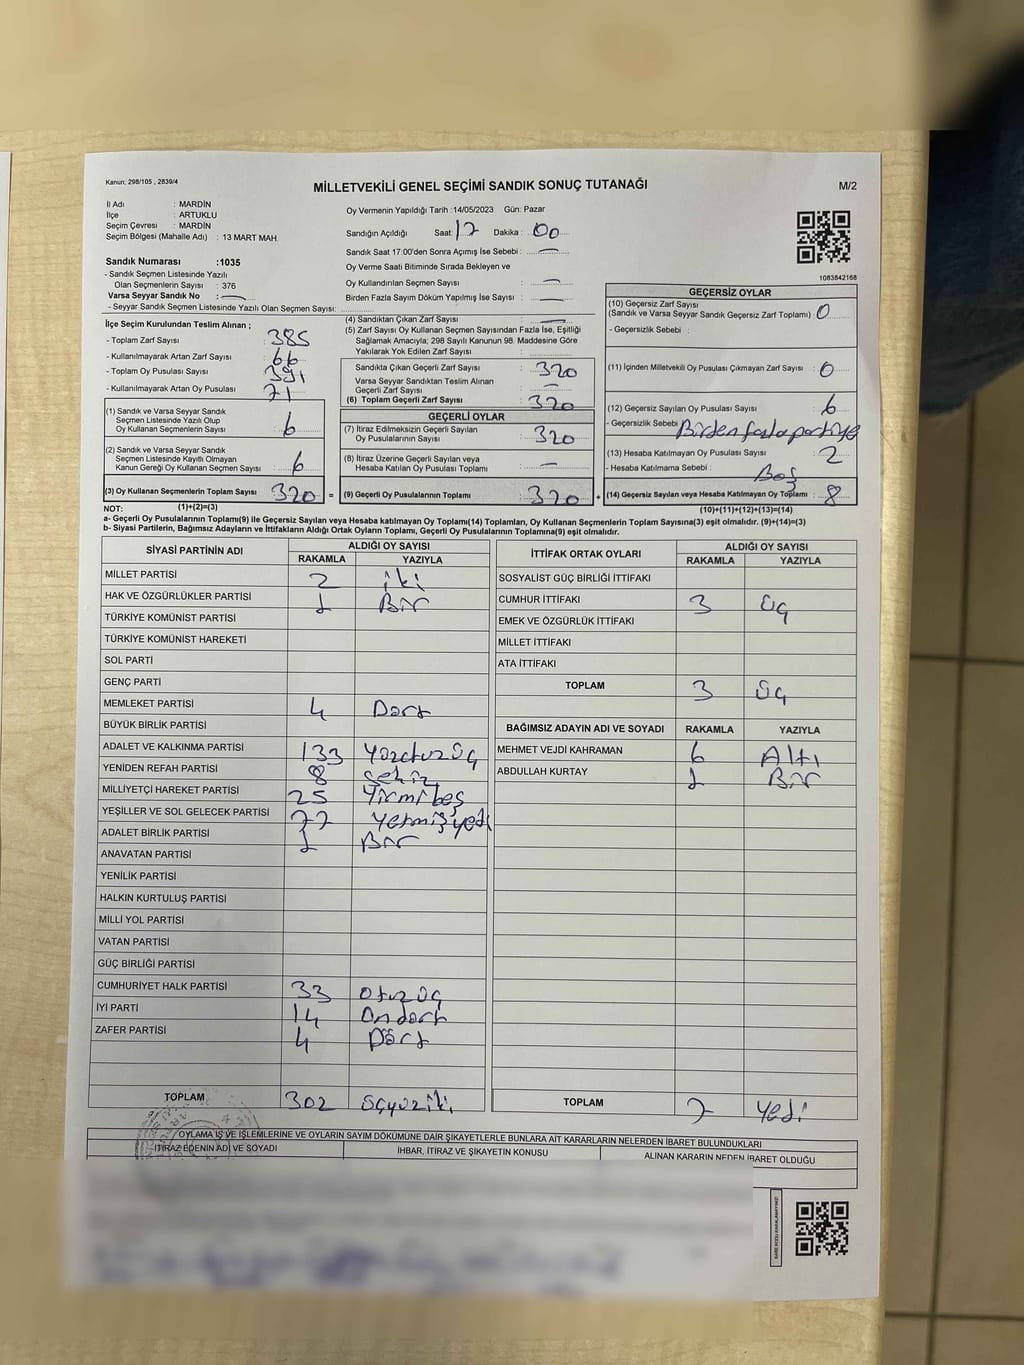 Kanun: 298/105 , 2839/4
MİLLETVEKİLİ GENEL SEÇİMİ SANDIK SONUÇ TUTANAĞI
M/2
İl Adı : MARDİN
İlçe : ARTUKLU
Seçim Çevresi : MARDİN
Seçim Bölgesi (Mahalle Adı) : 13 MART MAH.
Sandık Numarası :1035
- Sandık Seçmen Listesinde Yazılı
Olan Seçmenlerin Sayısı : 376
Varsa Seyyar Sandık No : —
- Seyyar Sandık Seçmen Listesinde Yazılı Olan Seçmen Sayısı:
Oy Vermenin Yapıldığı Tarih :14/05/2023 Gün: Pazar
Sandığın Açıldığı Saat: 17 Dakika : 00
Sandık Saat 17:00'den Sonra Açımış İse Sebebi : —
Oy Verme Saati Bitiminde Sırada Bekleyen ve
Oy Kullandırılan Seçmen Sayısı : —
Birden Fazla Sayım Döküm Yapılmış İse Sayısı : —
1083842168
İlçe Seçim Kurulundan Teslim Alınan ;
- Toplam Zarf Sayısı : 385
- Kullanılmayarak Artan Zarf Sayısı : 66
- Toplam Oy Pusulası Sayısı : 391
- Kullanılmayarak Artan Oy Pusulası : 71
(1) Sandık ve Varsa Seyyar Sandık
Seçmen Listesinde Yazılı Olup
Oy Kullanan Seçmenlerin Sayısı : 6
(2) Sandık ve Varsa Seyyar Sandık
Seçmen Listesinde Kayıtlı Olmayan
Kanun Gereği Oy Kullanan Seçmen Sayısı : 6
(3) Oy Kullanan Seçmenlerin Toplam Sayısı : 320 =
(1)+(2)=(3)
(4) Sandıktan Çıkan Zarf Sayısı : —
(5) Zarf Sayısı Oy Kullanan Seçmen Sayısından Fazla İse, Eşitliği
Sağlamak Amacıyla; 298 Sayılı Kanunun 98. Maddesine Göre
Yakılarak Yok Edilen Zarf Sayısı :
Sandıkta Çıkan Geçerli Zarf Sayısı : 320
Varsa Seyyar Sandıktan Teslim Alınan
Geçerli Zarf Sayısı : —
(6) Toplam Geçerli Zarf Sayısı : 320
GEÇERLİ OYLAR
(7) İtiraz Edilmeksizin Geçerli Sayılan
Oy Pusulalarının Sayısı : 320
(8) İtiraz Üzerine Geçerli Sayılan veya
Hesaba Katılan Oy Pusulası Toplamı : —
(9) Geçerli Oy Pusulalarının Toplamı : 320 +
GEÇERSİZ OYLAR
(10) Geçersiz Zarf Sayısı
(Sandık ve Varsa Seyyar Sandık Geçersiz Zarf Toplamı) : 0
- Geçersizlik Sebebi :
(11) İçinden Milletvekili Oy Pusulası Çıkmayan Zarf Sayısı : 0
(12) Geçersiz Sayılan Oy Pusulası Sayısı : 6
- Geçersizlik Sebebi : Birden fazla partiye
(13) Hesaba Katılmayan Oy Pusulası Sayısı : 2
- Hesaba Katılmama Sebebi : Boş
(14) Geçersiz Sayılan veya Hesaba Katılmayan Oy Toplamı : 8
(10)+(11)+(12)+(13)=(14)
NOT:
a- Geçerli Oy Pusulalarının Toplamı(9) ile Geçersiz Sayılan veya Hesaba katılmayan Oy Toplam(14) Toplamları, Oy Kullanan Seçmenlerin Toplam Sayısına(3) eşit olmalıdır. (9)+(14)=(3)
b- Siyasi Partilerin, Bağımsız Adayların ve İttifakların Aldığı Ortak Oyların Toplamı, Geçerli Oy Pusulalarının Toplamına(9) eşit olmalıdır.
SİYASİ PARTİNİN ADI ALDIĞI OY SAYISI
RAKAMLA YAZIYLA
MİLLET PARTİSİ 2 iki
HAK VE ÖZGÜRLÜKLER PARTİSİ 1 Bir
TÜRKİYE KOMÜNİST PARTİSİ
TÜRKİYE KOMÜNİST HAREKETİ
SOL PARTİ
GENÇ PARTİ
MEMLEKET PARTİSİ 4 Dört
BÜYÜK BİRLİK PARTİSİ
ADALET VE KALKINMA PARTİSİ 133 Yüzotuzüç
YENİDEN REFAH PARTİSİ 8 Sekiz
MİLLİYETÇİ HAREKET PARTİSİ 25 Yirmibeş
YEŞİLLER VE SOL GELECEK PARTİSİ 77 Yetmişyedi
ADALET BİRLİK PARTİSİ 1 Bir
ANAVATAN PARTİSİ
YENİLİK PARTİSİ
HALKIN KURTULUŞ PARTİSİ
MİLLİ YOL PARTİSİ
VATAN PARTİSİ
GÜÇ BİRLİĞİ PARTİSİ
CUMHURİYET HALK PARTİSİ 33 Otuzüç
İYİ PARTİ 14 Ondört
ZAFER PARTİSİ 4 Dört
TOPLAM 302 üçyüziki
İTTİFAK ORTAK OYLARI ALDIĞI OY SAYISI
RAKAMLA YAZIYLA
SOSYALİST GÜÇ BİRLİĞİ İTTİFAKI
CUMHUR İTTİFAKI 3 üç
EMEK VE ÖZGÜRLÜK İTTİFAKI
MİLLET İTTİFAKI
ATA İTTİFAKI
TOPLAM 3 üç
BAĞIMSIZ ADAYIN ADI VE SOYADI RAKAMLA YAZIYLA
MEHMET VEJDİ KAHRAMAN 6 Altı
ABDULLAH KURTAY 1 Bir
TOPLAM 7 yedi
OYLAMA İŞ VE İŞLEMLERİNE VE OYLARIN SAYIM DÖKÜMÜNE DAİR ŞİKAYETLERLE BUNLARA AİT KARARLARIN NELERDEN İBARET BULUNDUKLARI
İTİRAZ EDENİN ADI VE SOYADI İHBAR, İTİRAZ VE ŞİKAYETİN KONUSU ALINAN KARARIN NEDEN İBARET OLDUĞU